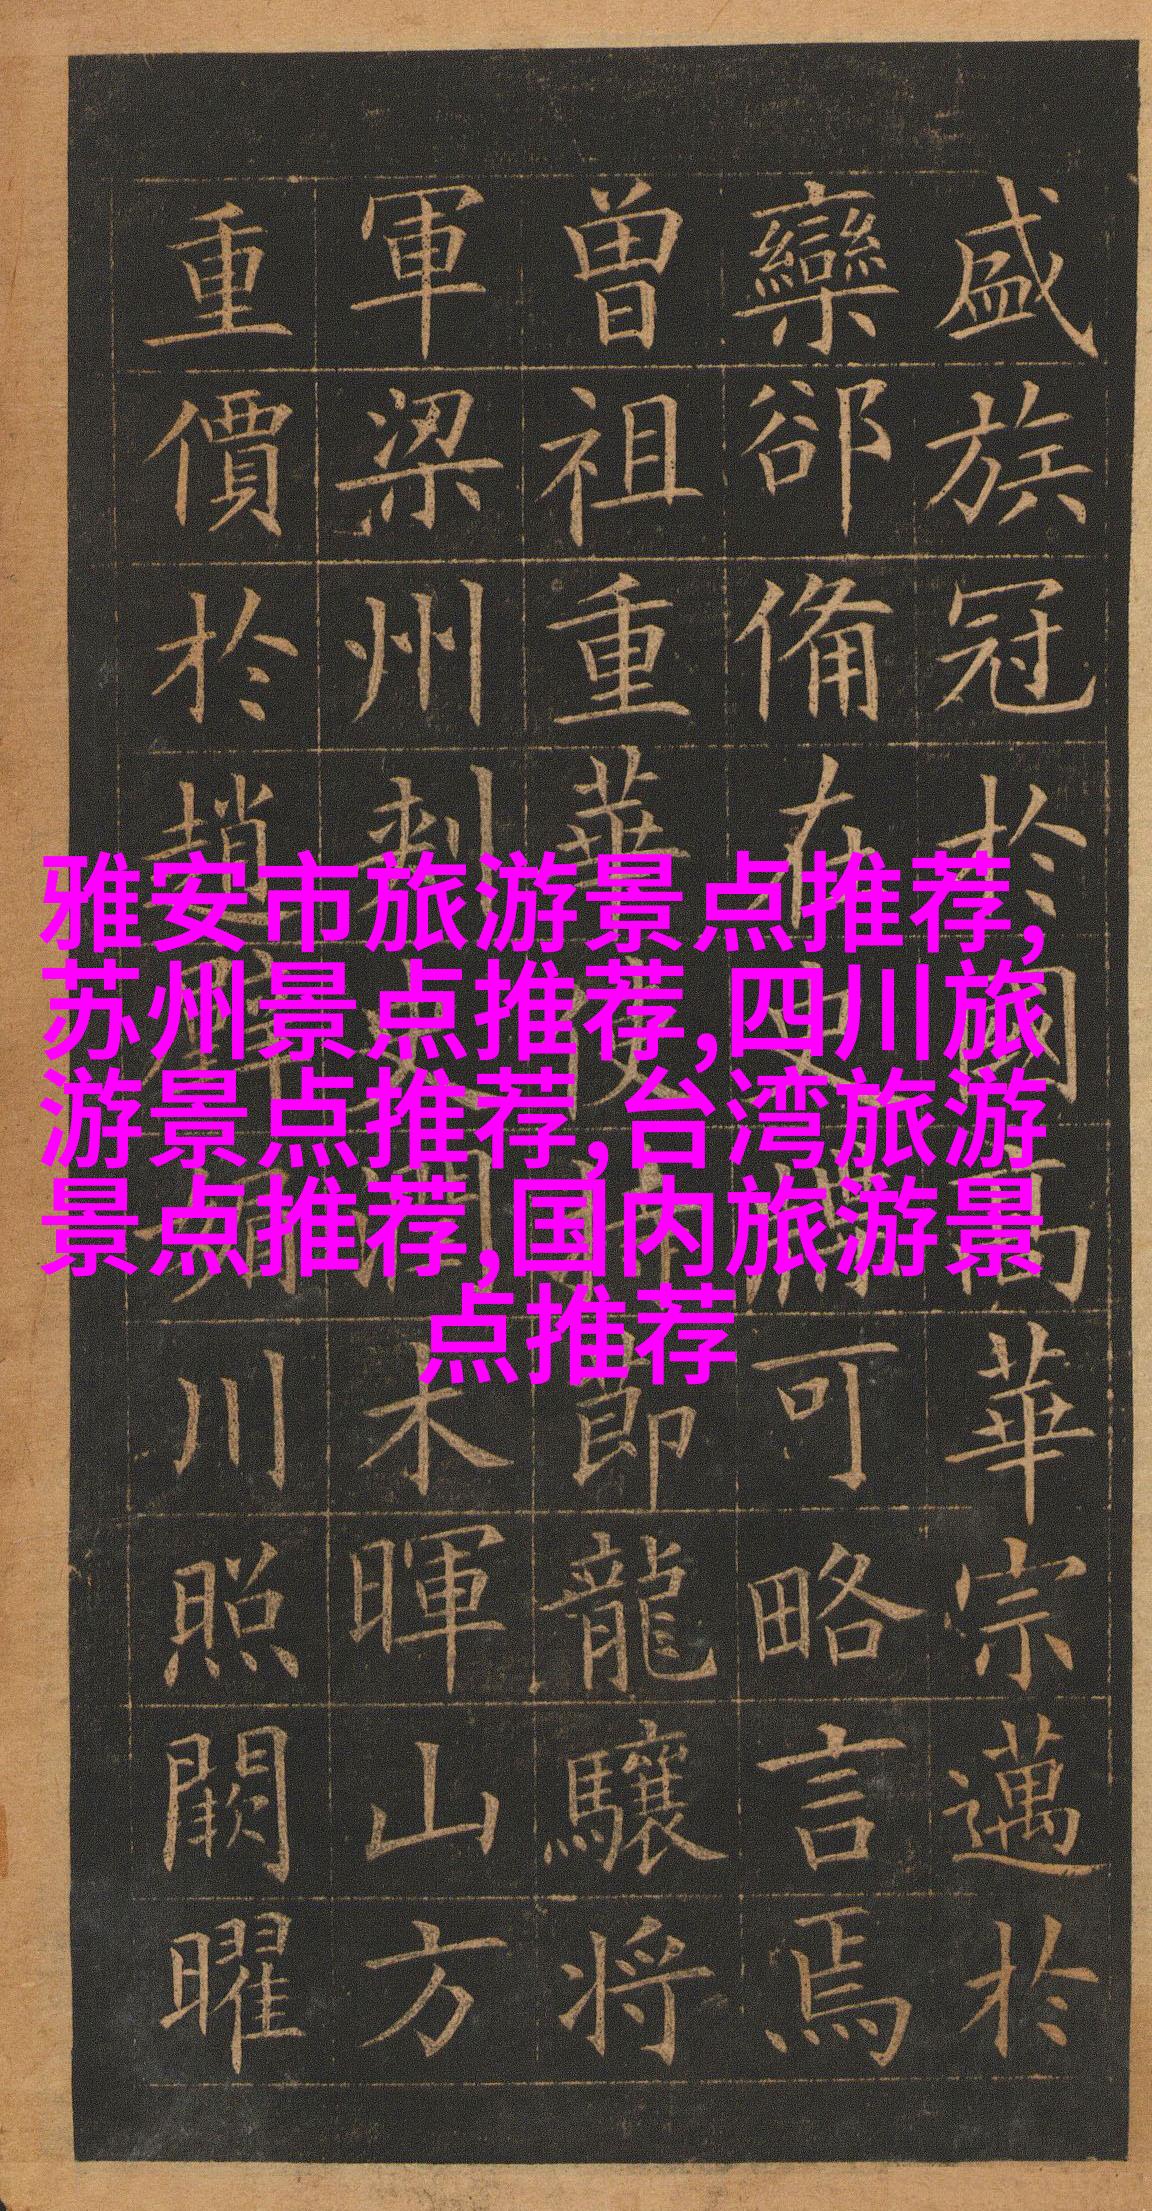 盛族冠於國高華宗邁於
欒郤備在史牒可略言焉
曾祖重華使持節龍驤将
軍梁州刺史潤木暉山方
重價於趙璧媚川照闕曜
雅安市旅游景点推荐,
苏州景点推荐,四川旅
游景点推荐,台湾旅游
景点推荐,国内旅游景
点推荐